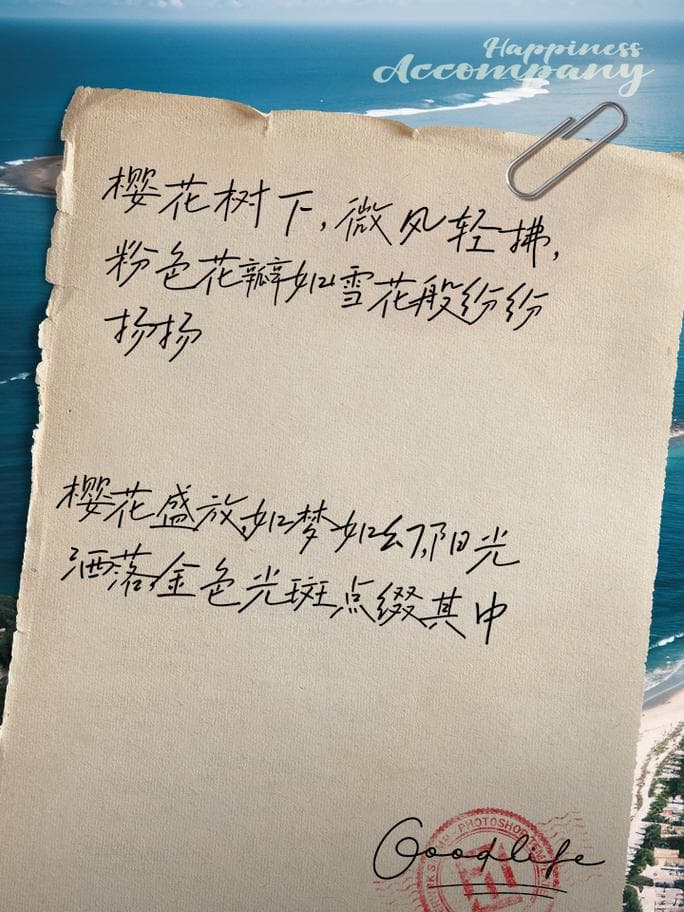 Happiness
Accompany
樱花树下,微风轻拂,
粉色花瓣如雪花般纷纷
扬扬
樱花盛放,如梦如幻,阳光
洒落,金色光斑点缀其中
PHOTOSHOP
Goodlife